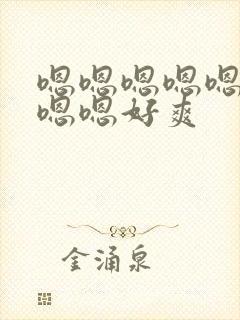 嗯嗯嗯嗯嗯
嗯嗯好爽
金涌泉